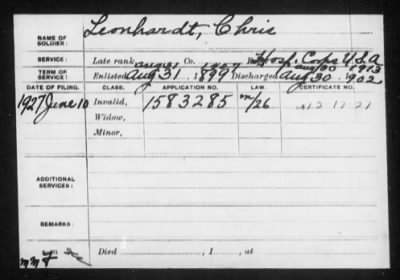 NAME OF SOLDIER: Leonhardt, Chris
SERVICE: Late rank Co. Hosp. Corps U.S.A
Aug 30 1913
TERM OF SERVICE: Enlisted Aug 31, 1899 Discharged Aug 30, 1902
DATE OF FILING. CLASS. APPLICATION NO. LAW. CERTIFICATE NO.
1927 June 10 Invalid, 1583285 /26 12 11 21
Widow,
Minor,
ADDITIONAL SERVICES:
REMARKS:
Died , 1 , at